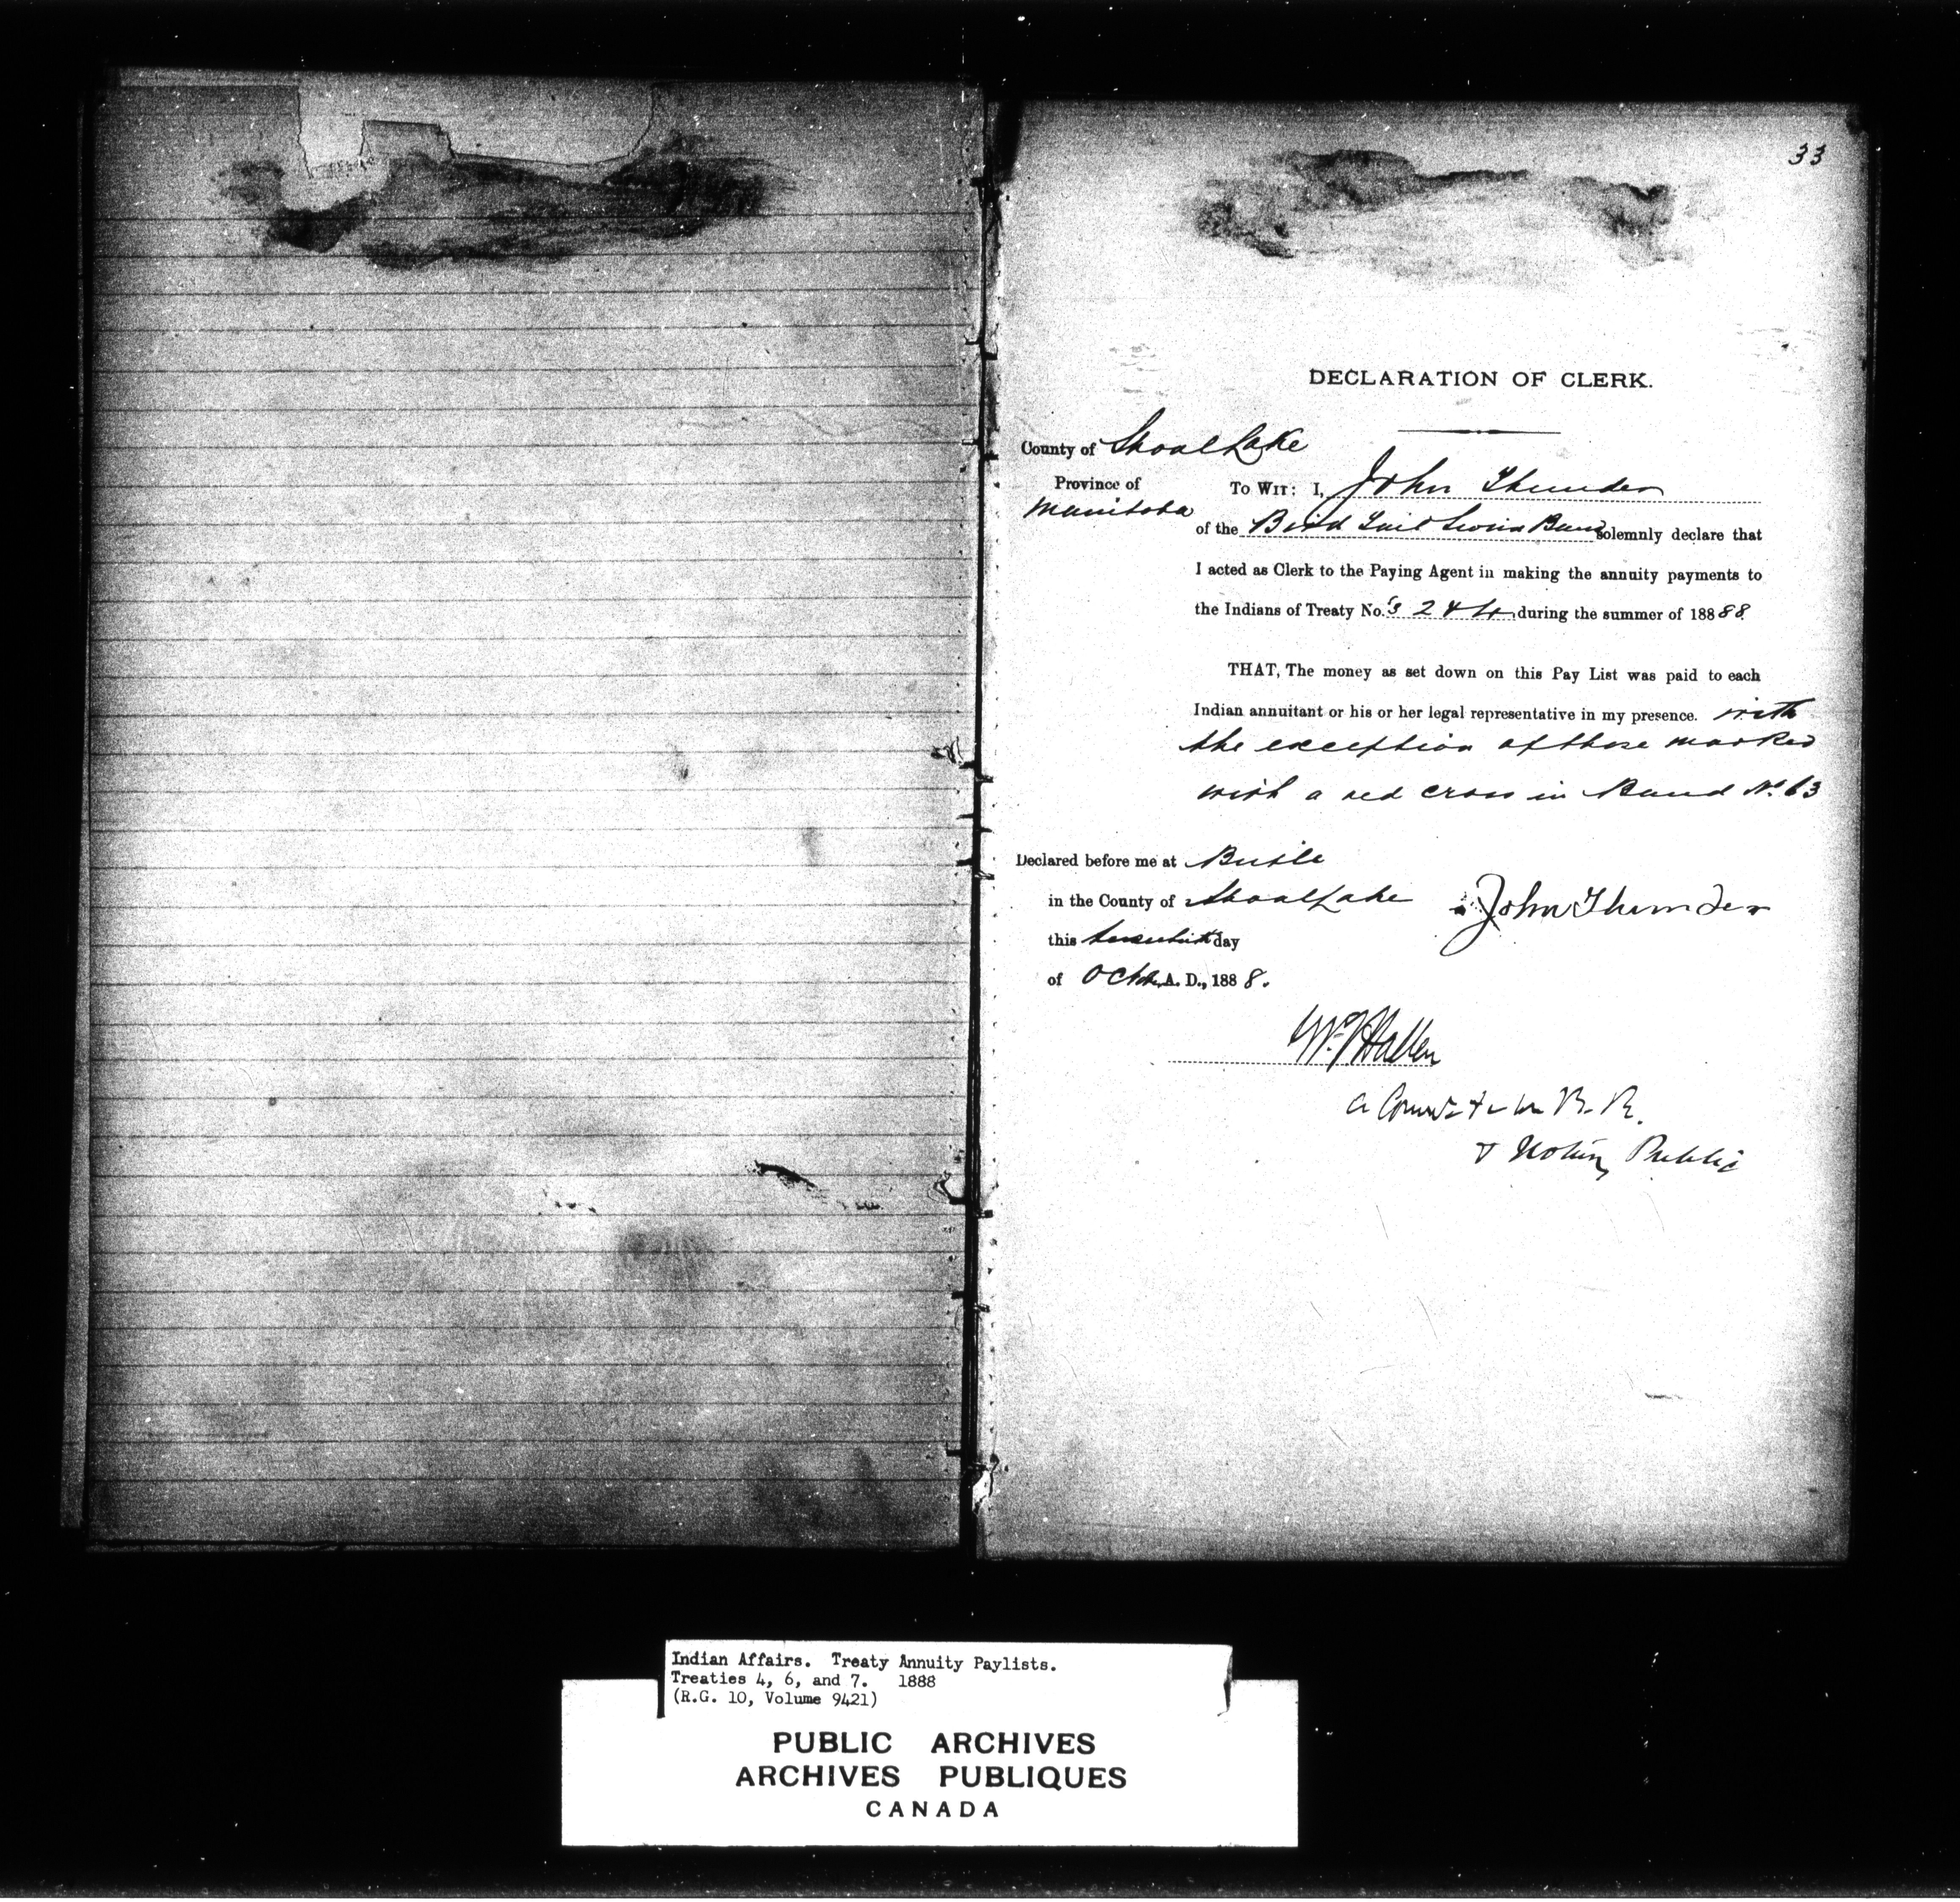 33
DECLARATION OF CLERK.
County of Shoal Lake
Province of
Manitoba
To Wit: I, John Thunder
of the Bird Tail Sioux Band solemnly declare that
I acted as Clerk to the Paying Agent in making the annuity payments to
the Indians of Treaty No.'s 2 & 4 during the summer of 188 88.
THAT, The money as set down on this Pay List was paid to each
Indian annuitant or his or her legal representative in my presence. with
the exception of those marked
with a red cross in Band No. 63
Declared before me at Birtle
in the County of Shoal Lake
John Thunder
this day
of Octbr A. D., 188 8.
a B. R.
& Notary Public
Indian Affairs. Treaty Annuity Paylists.
Treaties 4, 6, and 7. 1888
(R.G. 10, Volume 9421)
PUBLIC ARCHIVES
ARCHIVES PUBLIQUES
CANADA